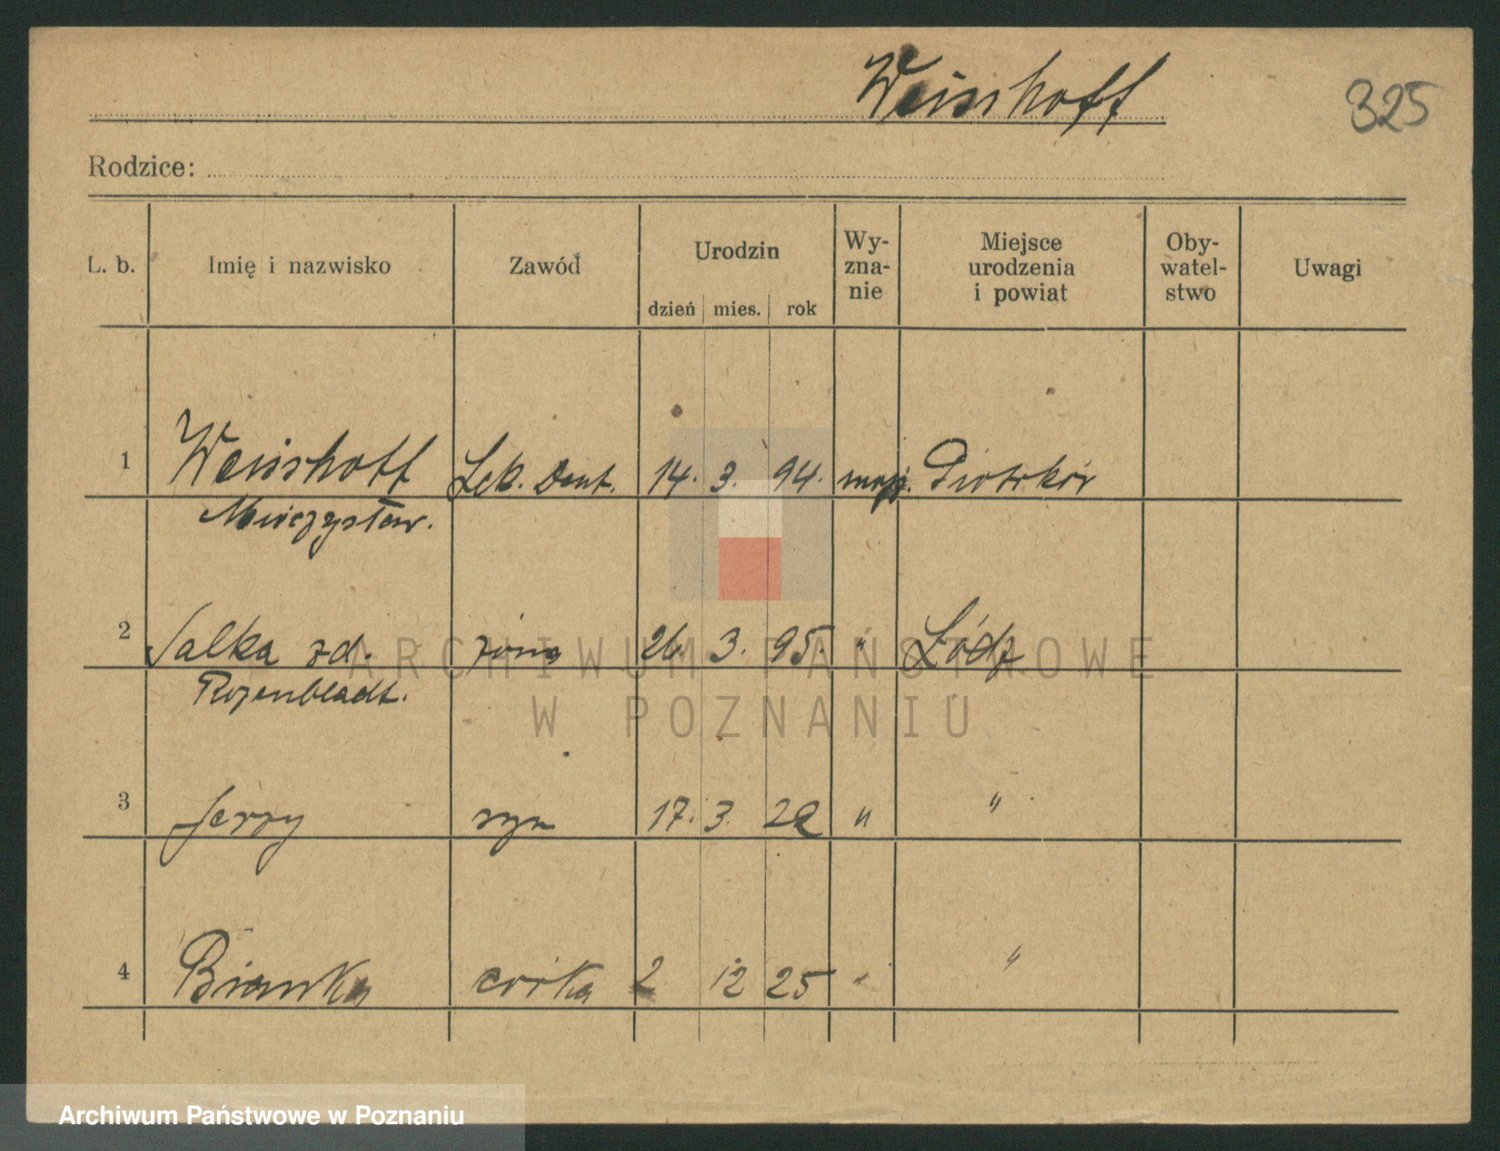 Weisshoff
325
Rodzice:
L. b. Imię i nazwisko Zawód Urodzin dzień mies. rok Wy-zna-nie Miejsce urodzenia i powiat Oby-watel-stwo Uwagi
1 Weisshoff Lek. Dent. 14. 3. 94. mojż. Piotrków
Mieczysław.
2 Salka zd. żona 26. 3. 95. " Łódź
Rozenbladt.
3 Jerzy syn 17. 3. "  "
4 Bianka córka 2 12 25 " "
ARCHIWUM PAŃSTWOWE
W POZNANIU
Archiwum Państwowe w Poznaniu